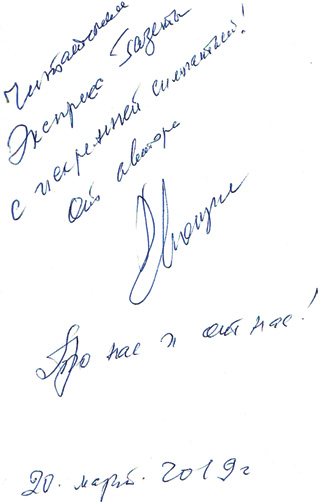 Читателям
Экспресс Газеты
с искренней симпатией!
от автора
Про нас и от нас!
20. март. 2019г